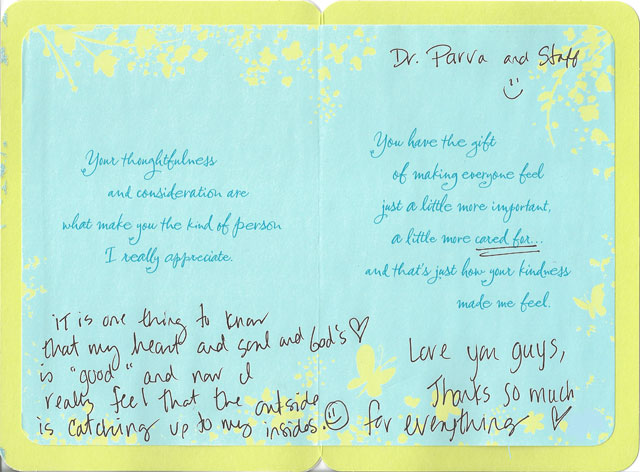 Your thoughtfulness
and consideration are
what make you the kind of person
I really appreciate.
iT is one thing to know
that my heart and soul and God's
is "good" and now I
really feel that the outside
is catching up to my insides.
Dr. Parva and Staff
You have the gift
of making everyone feel
just a little more important,
a little more cared for...
and that's just how your kindness
made me feel.
Love you guys,
Thanks so much
for everything